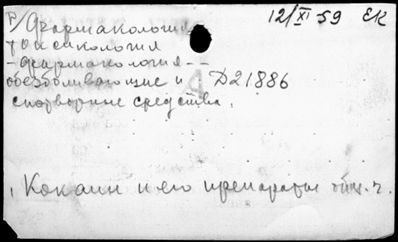 Р/Фармакология 12/XI 59 ЕК
токсикология
- фармакология - -
обезболивающие и Д21886
снотворные средства.
Кокаин и его препараты общ. ч.